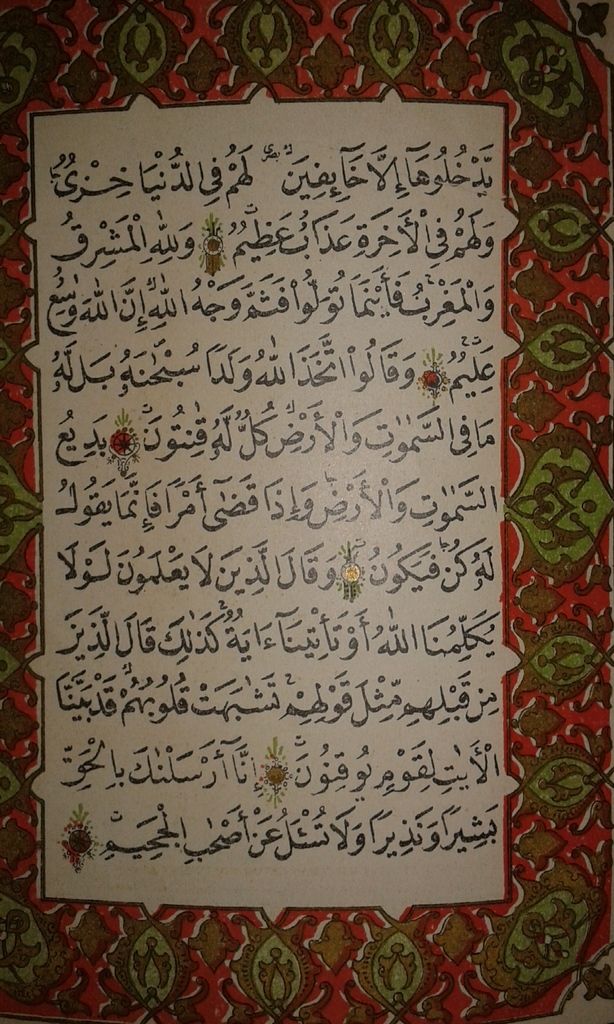 يَدْخُلُوهَآ إِلَّا خَآئِفِينَ ۚ لَهُمْ فِي الدُّنْيَا خِزْيٌ
وَلَهُمْ فِي الْأَخِرَةِ عَذَابٌ عَظِيمٌ وَلِلّٰهِ الْمَشْرِقُ
وَالْمَغْرِبُ فَأَيْنَمَا تُوَلُّوا فَثَمَّ وَجْهُ اللّٰهِ إِنَّ اللّٰهَ وٰسِعٌ
عَلِيمٌ وَقَالُوا اتَّخَذَ اللّٰهُ وَلَدًا سُبْحٰنَهُ بَلْ لَهُ
مَا فِي السَّمٰوٰتِ وَالْأَرْضِ كُلٌّ لَهُ قٰنِتُونَ بَدِيعُ
السَّمٰوٰتِ وَالْأَرْضِ وَإِذَا قَضٰىٓ أَمْرًا فَإِنَّمَا يَقُولُ
لَهُ كُنْ فَيَكُونُ وَقَالَ الَّذِينَ لَا يَعْلَمُونَ لَوْلَا
يُكَلِّمُنَا اللّٰهُ أَوْ تَأْتِينَآ ءَايَةٌ كَذٰلِكَ قَالَ الَّذِينَ
مِنْ قَبْلِهِمْ مِثْلَ قَوْلِهِمْ تَشٰبَهَتْ قُلُوبُهُمْ قَدْ بَيَّنَّا
الْأَيٰتِ لِقَوْمٍ يُوقِنُونَ إِنَّآ أَرْسَلْنٰكَ بِالْحَقِّ
بَشِيرًا وَنَذِيرًا وَلَا تُسْئَلُ عَنْ أَصْحٰبِ الْجَحِيمِ